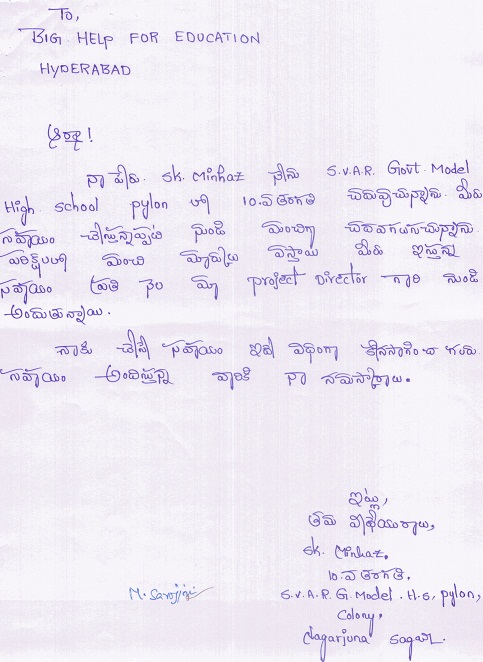 To,
BIG HELP FOR EDUCATION
HYDERABAD
ఆర్యా!
నా పేరు. SK. Minhaz నేను S.V.A.R. Govt. Model
High school pylon లో 10.వ తరగతి చదువుచున్నాను. మీరు
సహాయం చేస్తున్నప్పటి నుండి మంచిగా చదవగలుగుచున్నాను.
పరీక్షలలో మంచి మార్కులు వస్తాయి మీరు ఇస్తున్న
సహాయం ప్రతి నెల మా project Director గారి నుండి
అందుతున్నాయి.
నాకు చేసే సహాయం ఇదే విధంగా కొనసాగించగలరు.
సహాయం అందిస్తున్న వారికి నా నమస్కారాలు.
ఇట్లు,
తమ విధేయురాలు,
SK. Minhaz.
10.వ తరగతి.
S.V.A.R.G.Model.H.S, pylon,
Colony,
Nagarjuna Sagar.
M. Sarojini